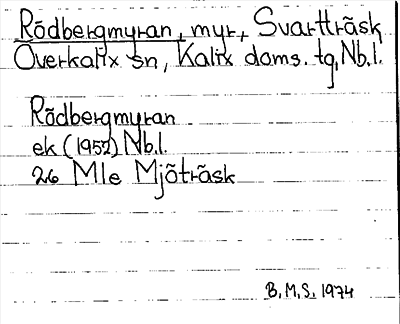 Rödbergmyran, myr, Svartträsk
Överkalix sn, Kalix doms. tg, Nb.l.
Rödbergmyran
ek (1952) Nb.l.
26 Mle Mjöträsk
B.M.S. 1974